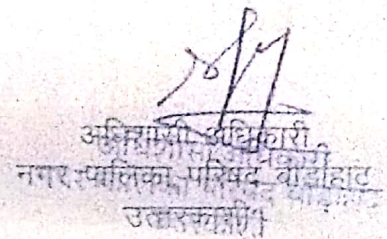 अधिशासी अधिकारी
नगर पालिका परिषद बाड़ाहाट
उत्तरकाशी।